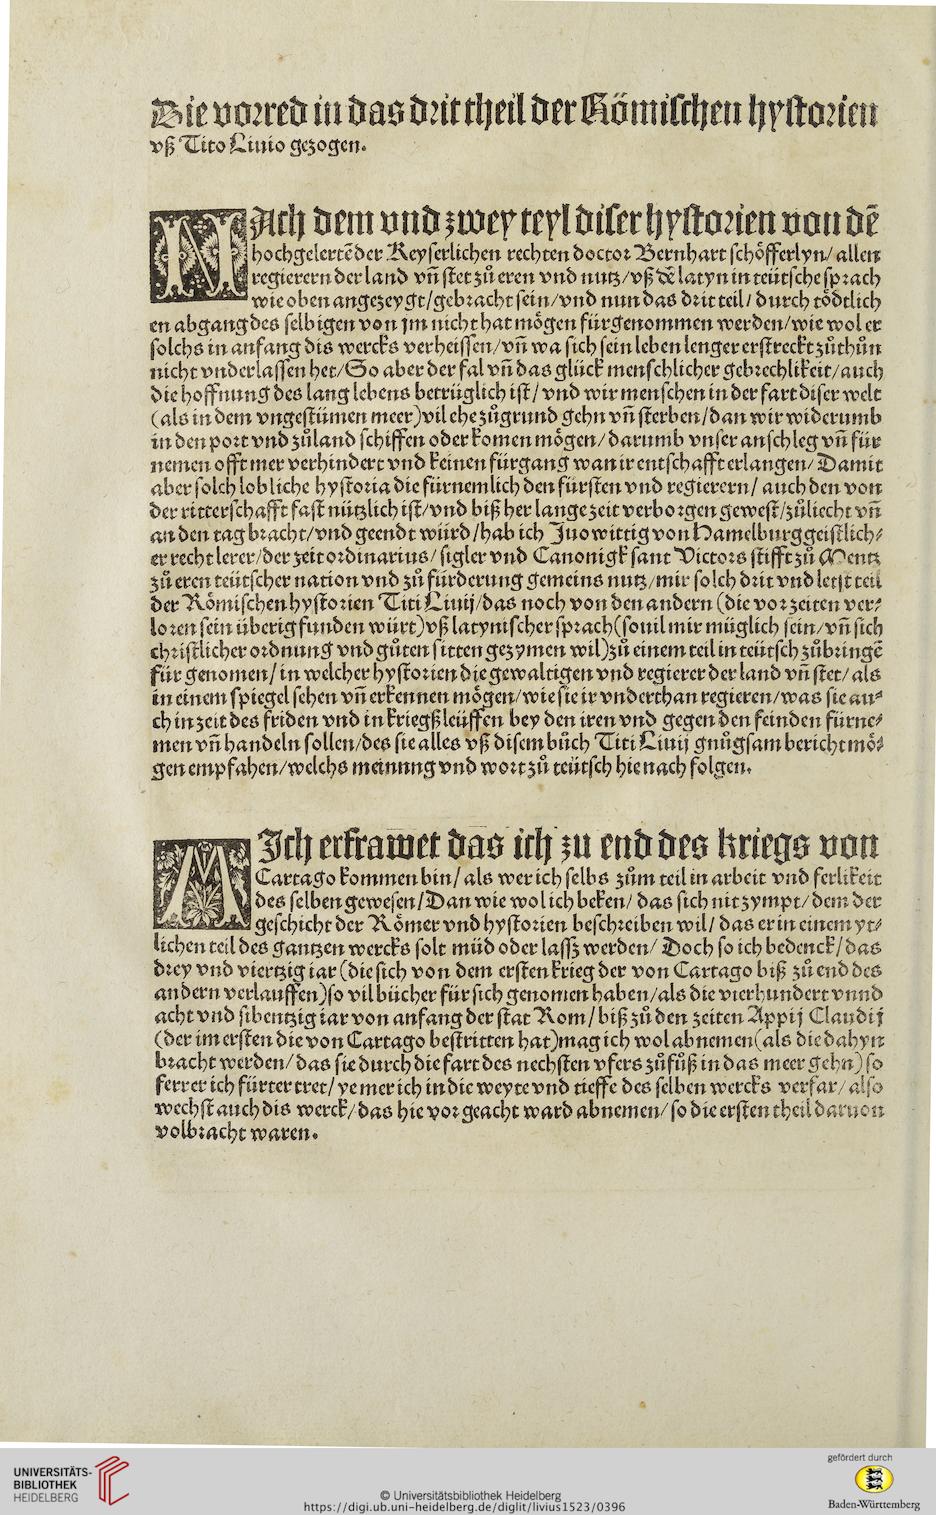 Die vorred in das drit theil der Römischen hystorien
vß Tito Liuio gezogen.
NAch dem vnd zwey teyl diser hystorien von dē
hochgelertē der Keyserlichen rechten doctor Bernhart schöfferlyn/ allen
regierern der land vñ stet zů eren vnd nutz/vß dē latyn in teütsche sprach
wie oben angezeygt/gebracht sein/vnd nun das drit teil/ durch tödtlich
en abgang des selbigen von jm nicht hat mögen fürgenommen werden/wie wol er
solchs in anfang dis wercks verheissen/vñ wa sich sein leben lenger erstreckt zůthůn
nicht vnderlassen het/So aber der fal vñ das glück menschlicher gebrechlikeit/auch
die hoffnung des lang lebens betrüglich ist/ vnd wir menschen in der fart diser welt
(als in dem vngestümen meer)vil ehe zůgrund gehn vñ sterben/dan wir widerumb
in den port vnd zůland schiffen oder komen mögen/ darumb vnser anschleg vñ für
nemen offt mer verhindert vnd keinen fürgang wan ir entschafft erlangen/ Damit
aber solch lobliche hystoria die fürnemlich den fürsten vnd regierern/ auch den von
der ritterschafft fast nützlich ist/vnd biß her lange zeit verborgen gewest/zůliecht vñ
an den tag bracht/vnd geendt würd/hab ich Juo wittig von Hamelburg geistlich⸗
er recht lerer/der zeit ordinarius/ sigler vnd Canonigk sant Victors stifft zů Mentz
zů eren teütscher nation vnd zů fürderung gemeins nutz/mir solch drit vnd letst teil
der Römischen hystorien Titi Liuij/das noch von den andern (die vor zeiten ver⸗
loren sein überig funden würt)vß latynischer sprach(souil mir müglich sein/vñ sich
christlicher ordnung vnd gůten sitten gezymen wil)zů einem teil in teütsch zůbringē
für genomen/ in welcher hystorien die gewaltigen vnd regierer der land vñ stet/ als
in einem spiegel sehen vñ erkennen mögen/wie sie ir vnderthan regieren/was sie au⸗
ch in zeit des friden vnd in kriegßleüffen bey den iren vnd gegen den feinden fürne⸗
men vñ handeln sollen/des sie alles vß disem bůch Titi Liuij gnůgsam bericht mö⸗
gen empfahen/welchs meinung vnd wort zů teütsch hie nach folgen.
MIch erfrawet das ich zu end des kriegs von
Cartago kommen bin/ als wer ich selbs zům teil in arbeit vnd ferlikeit
des selben gewesen/Dan wie wol ich beken/ das sich nit zympt/ dem der
geschicht der Römer vnd hystorien beschreiben wil/ das er in einem yt⸗
lichen teil des gantzen wercks solt müd oder lassz werden/ Doch so ich bedenck/das
drey vnd viertzig iar (die sich von dem ersten krieg der von Cartago biß zů end des
andern verlauffen)so vil bücher für sich genomen haben/als die vierhundert vnnd
acht vnd sibentzig iar von anfang der stat Rom/ biß zů den zeiten Appij Claudij
(der im ersten die von Cartago bestritten hat)mag ich wol abnemen(als die dahyn
bracht werden/das sie durch die fart des nechsten vfers zůfůß in das meer gehn) so
ferrer ich fürter tret/ ye mer ich in die weyte vnd tieffe des selben wercks verfar/ also
wechst auch dis werck/das hie vor geacht ward abnemen/ so die ersten theil daruon
volbracht waren.
UNIVERSITÄTS-
BIBLIOTHEK
HEIDELBERG
© Universitätsbibliothek Heidelberg
https://digi.ub.uni-heidelberg.de/diglit/livius1523/0396
gefördert durch
Baden-Württemberg